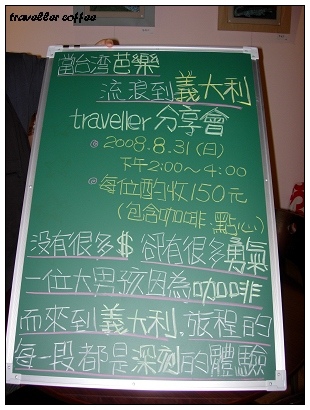 traveller coffee
當台湾芭樂
流浪到義大利
traveller 分享會
2008.8.31(日)
下午2:00～4:00
每位酌收150元
(包含咖啡.點心)
没有很多$ 卻有很多勇氣
一位大男孩因為咖啡
而來到義大利.旅程的
每一段都是深刻的體驗